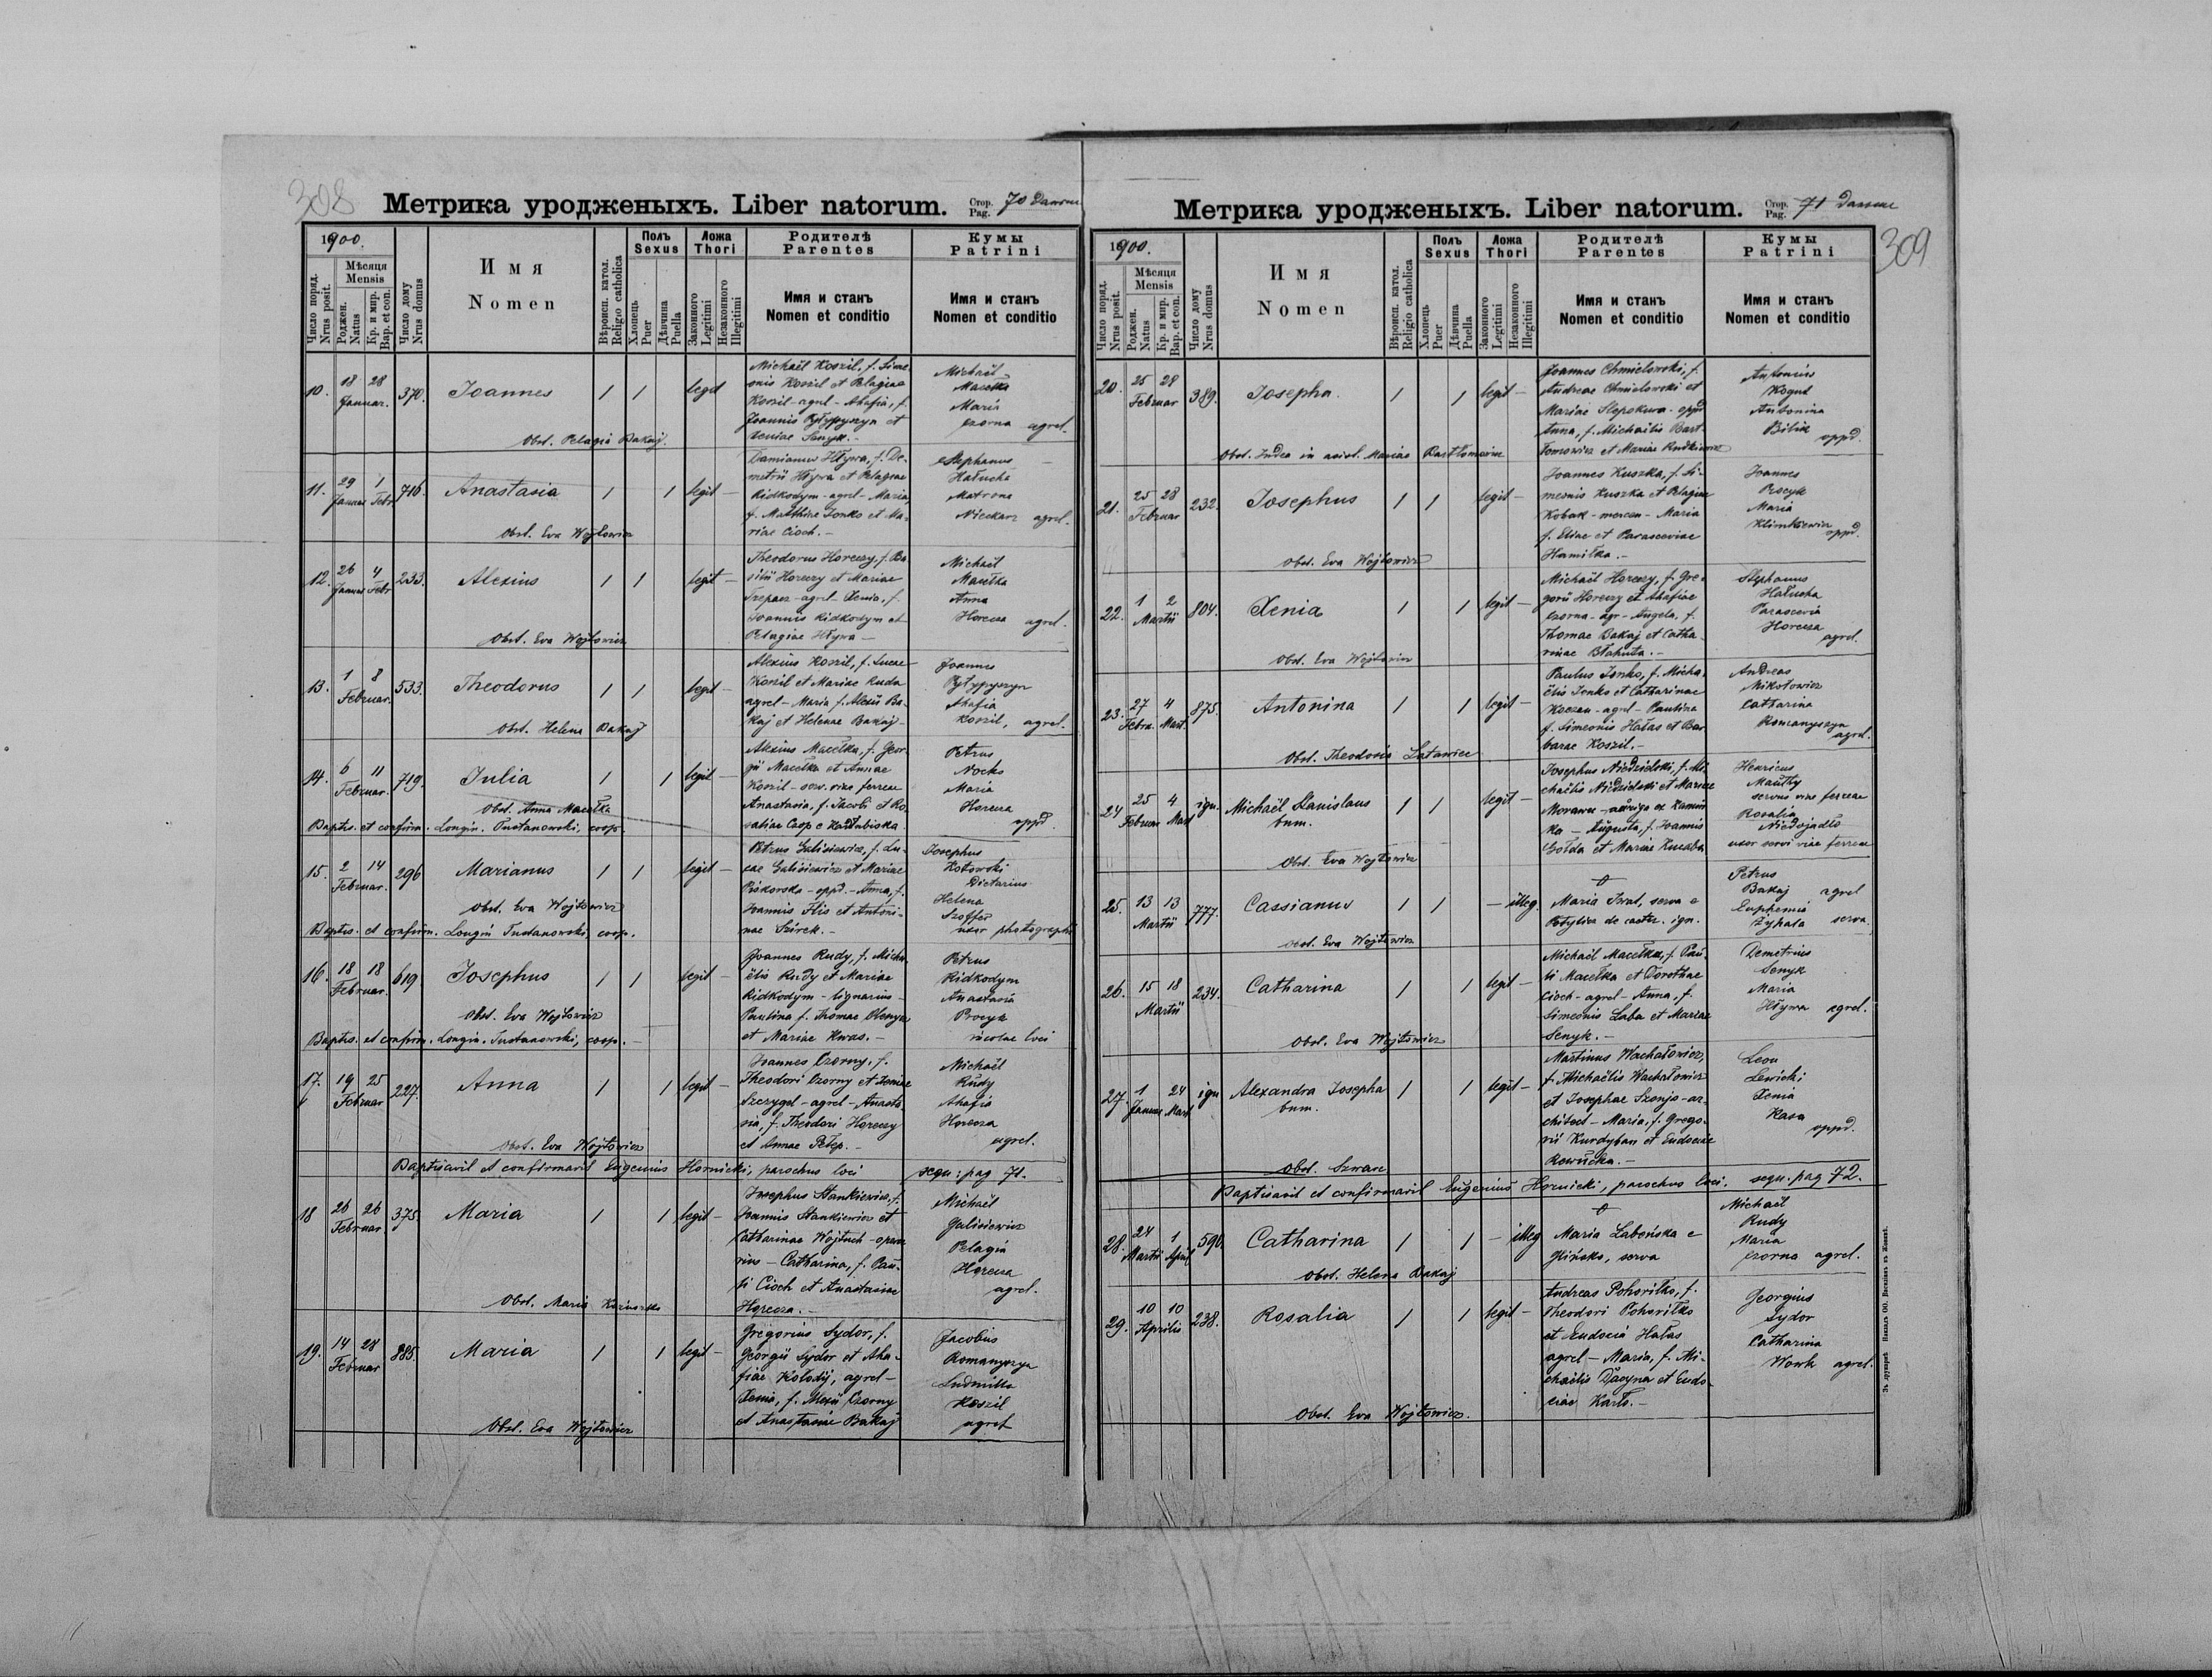 308
Метрика уродженыхъ. Liber natorum.
Стор. Pag. 70
1900.
Число поряд. Nrus posit.
Мѣсяця Mensis
Роджен. Natus
Кр. и мир. Bap. et con.
Число дому Nrus domus
Имя
Nomen
Вѣроисп. катол. Religio catholica
Полъ Sexus
Хлопець Puer
Дѣвчина Puella
Ложа Thori
Законного Legitimi
Незаконного Illegitimi
Родителѣ
Parentes
Имя и станъ
Nomen et conditio
Кумы
Patrini
Имя и станъ
Nomen et conditio
10. 18 28 Januar. 370. Joannes 1 1 legit
Michaël Koszil, f. Sime-
onis Koszil et Pelagiae
Koszil - agrel - Ahafia, f.
Joannis Pytypyszyn et
Xeniae Senyk. -
Michaël
Macełka
Maria
Czorna agrel.
Obst. Pelagia Bakaj.
11. 29 Januar 1 Febr. 716. Anastasia 1 1 legit -
Damianus Hływa, f. De-
metrii Hływa et Pelagiae
Kidkodym - agrel - Maria,
f. Matthiae Jonko et Ma-
riae Cioch. -
Stephanus
Hałucha
Matrona
agrel.
Obst. Eva Wojtowicz
12. 26 Januar 4 Febr 233. Alexius 1 1 legit -
Theodorus Horeczy, f. Ba-
silii Horeczy et Mariae
- agrel - Xenia, f.
Joannis Kidkodym et
Pelagiae Hływa -
Michaël
Macełka
Anna
Horecza agrel.
Obst. Eva Wojtowicz
13. 1 8 Februar. 533. Theodorus 1 1 legit -
Alexius Koszil, f. Lucae
Koszil et Mariae Ruda
agrel - Maria f. Alexii Ba-
kaj et Helenae Bakaj -
Joannes
Pytypyszyn
Ahafia
Koszil, agrel.
Obst. Helena Bakaj
14. 6 11 Februar. 719. Julia 1 1 legit -
Alexius Macełka, f. Geor-
gii Macełka et Annae
Koszil - serv. viae ferreae
Anastasia, f. Jacobi et Ro-
saliae Czop e
Petrus
Nocko
Maria
Horecza
oppd.
Obst. Anna Macełka
Baptis. et confirm. Longin. Tustanowski, coop.
15. 2 14 Februar. 296 Marianus 1 1 legit -
Petrus Galisiewicz, f. Lu-
cae Galisiewicz et Mariae
Piskorska - oppd. - Anna, f.
Joannis Flis et Antoni-
nae Szirek. -
Josephus
Kotowski
Dietarius
Helena
Szoffer
uxor photographi
Obst. Eva Wojtowicz
Baptis. et confirm. Longin Tustanowski, coop.
16. 18 18 Februar. 619. Josephus 1 1 legit -
Joannes Rudy, f. Micha-
ëlis Rudy et Mariae
Kidkodym - lignarius -
Paulina f. Thomae
et Mariae Kwas. -
Petrus
Kidkodym
Anastasia
Procyk
incolae loci
Obst. Eva Wojtowicz
Baptis. et confirm. Longin. Tustanowski, coop. -
17. 19 25 Februar 227. Anna 1 1 legit -
Joannes Czorny, f.
Theodori Czorny et Xeniae
Szczygel - agrel - Anasta-
sia, f. Theodori Horeczy
et Annae Petep. -
Michaël
Rudy
Ahafia
Horecza
agrel.
Obst. Eva Wojtowicz
Baptisavit et confirmavit Eugenius Hornicki, parochus loci sequ: pag 71.
18 26 26 Februar 375. Maria 1 1 legit -
Josephus Stankiewicz, f.
Joannis Stankiewicz et
Catharinae Wojtuch - opera-
rius - Catharina, f. Pau-
li Cioch et Anastasiae
Horecza. -
Michaël
Galisiewicz
Pelagia
Horecza
agrel.
Obst. Maria
19. 14 28 Februar 885. Maria 1 1 legit -
Gregorius Sydor, f.
Georgii Sydor et Aha-
fiae Kolodij, agrel -
Xenia, f. Alexii Czorny
et Anastasiae Bakaj
Jacobus
Romanyszyn
Ludmilla
Koszil
agrel
Obst. Eva Wojtowicz
309
Метрика уродженыхъ. Liber natorum.
Стор. Pag. 71
1900.
Число поряд. Nrus posit.
Мѣсяця Mensis
Роджен. Natus
Кр. и мир. Bap. et con.
Число дому Nrus domus
Имя
Nomen
Вѣроисп. катол. Religio catholica
Полъ Sexus
Хлопець Puer
Дѣвчина Puella
Ложа Thori
Законного Legitimi
Незаконного Illegitimi
Родителѣ
Parentes
Имя и станъ
Nomen et conditio
Кумы
Patrini
Имя и станъ
Nomen et conditio
20. 25 28 Februar 389. Josepha. 1 1 legit -
Joannes Chmielowski, f.
Andreae Chmielowski et
Mariae Slepokura - oppd
Anna, f. Michaëlis Bart-
łomowicz et Mariae Rudkiewicz
Antonius
Kogut
Antonina
Bilik
oppd.
Obst. Maria Bartłomowicz
21. 25 28 Februar 232. Josephus 1 1 legit -
Joannes Kuszka, f. Si-
meonis Kuszka et Pelagiae
Kobak - mercen - Maria
f. Eliae et Parasceviae
Hamiłka. -
Joannes
Procyk
Maria
Klimkiewicz
oppd.
Obst. Eva Wojtowicz
22. 1 2 Martii 804. Xenia 1 1 legit -
Michaël Horeczy, f. Gre-
gorii Horeczy et Ahafiae
Czorna - agr - Angela, f.
Thomae Bakaj et Catha-
rinae Błahuta. -
Stephanus
Hałucha
Parascevia
Horecza
agrel.
Obst. Eva Wojtowicz
23. 27 Febru. 4 Mart. 875. Antonina 1 1 legit -
Paulus Jonko, f. Micha-
ëlis Jonko et Catharinae
- agrel - Paulina
f. Simeonis Hałas et Bar-
barae Koszil. -
Andreas
Mikołowicz
Catharina
Romanyszyn
agrel.
Obst. Theodosia Latawiec
24 25 Februar 4 Mart ign. Michaël Stanislaus bnm. 1 1 legit -
Josephus Niedzielski, f. Mi-
chaëlis Niedzielski et Mariae
- auriga ex
ka - Augusta, f. Joannis
Gołda et Mariae
Henricus
servus viae ferreae
Rosalia
uxor servi viae ferreae
Obst. Eva Wojtowicz
25. 13 13 Martii 777. Cassianus 1 1 - illeg.
Maria Iwat, serva e
de caeter. ign.
Petrus
Bakaj agrel
Euphemia
serva.
Obst. Eva Wojtowicz
26. 15 18 Martii 234. Catharina 1 1 legit -
Michaël Macełka, f. Pau-
li Macełka et Dorotheae
Cioch - agrel - Anna, f.
Simeonis Laba et Mariae
Senyk. -
Demetrius
Senyk
Maria
Hływa agrel.
Obst. Eva Wojtowicz
27. 1 Januar 24 Mart ign Alexandra Josepha bnm. 1 1 legit -
Martinus Wachałowicz,
f. Michaëlis Wachałowicz
et Josephae Szonjo - ar-
chitect - Maria, f. Grego-
rii Kurdyban et Eudociae
Rewućka. -
Leon
Lewicki
Xenia
Kasa
oppd.
Obst. Szwarc
Baptisavit et confirmavit Eugenius Hornicki, parochus loci. sequ. pag 72.
28. 24 Martii 1 April 590. Catharina 1 1 - illeg
Maria Labońska e
Glińsko, serva
Michaël
Rudy
Maria
Czorna agrel.
Obst. Helena Bakaj
29. 10 10 Aprilis 238. Rosalia 1 1 legit -
Andreas Pohoriłko, f.
Theodori Pohoriłko
et Eudocia Hałas
agrel - Maria, f. Mi-
chaëlis et Eudo-
ciae Karło. -
Georgius
Sydor
Catharina
Wowk agrel.
Obst. Eva Wojtowicz.